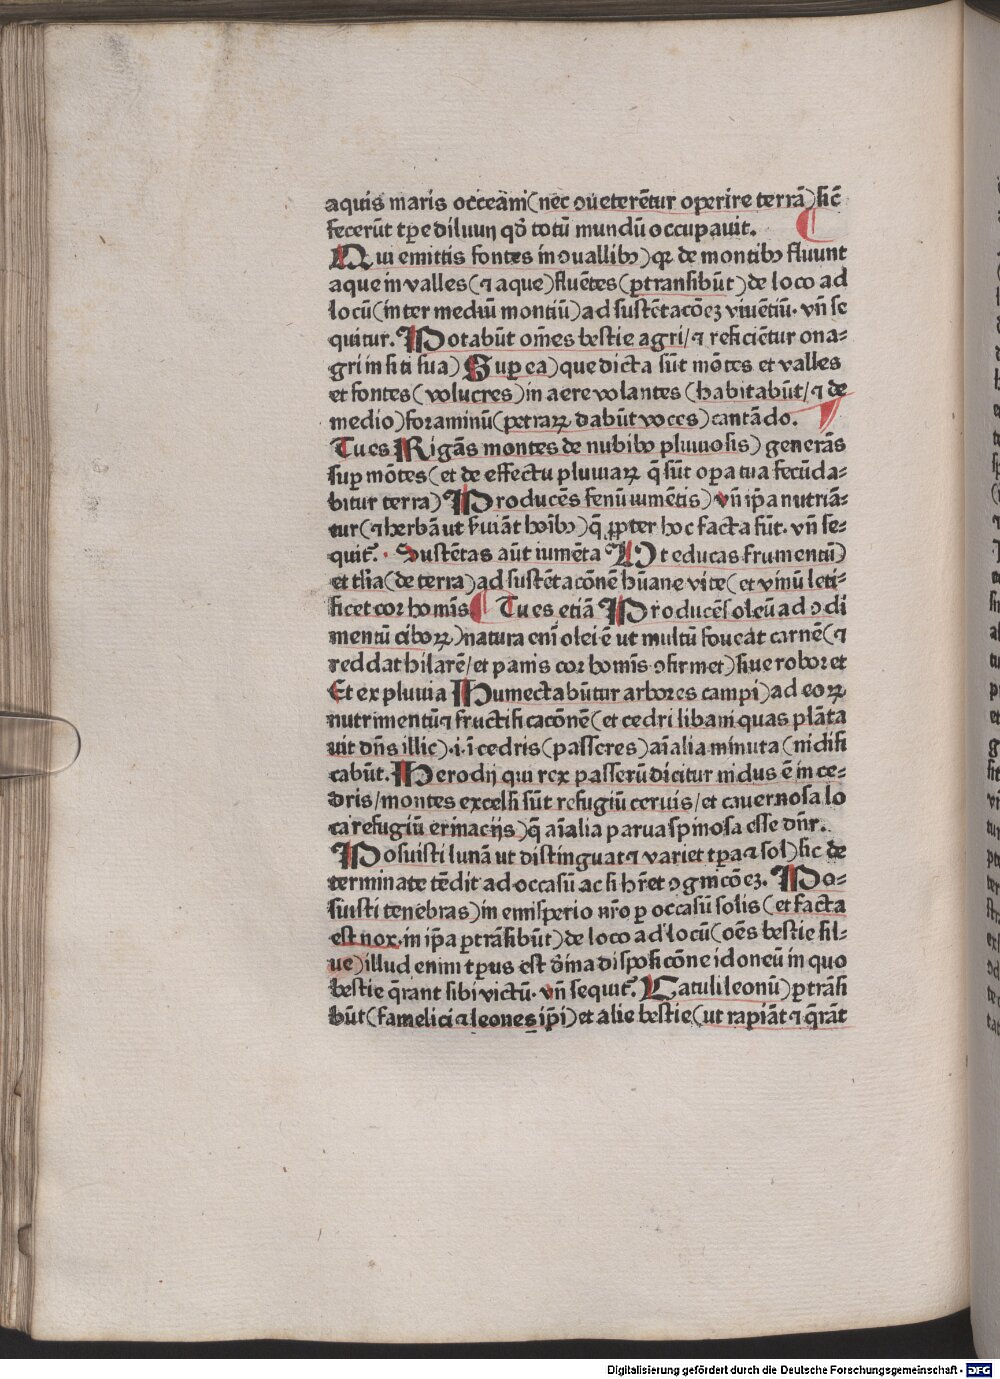 aquis maris occeani(nec ↄueterẽtur operire terrã)sic̃
fecerũt tꝑe diluuij qđ totũ mundũ occupauit.
Qui emittis fontes in ↄuallibꝰ)qꝛ de montibꝰ fluunt
aque in valles(⁊ aque)fluẽtes(ꝑtransibũt)de loco ad
locũ(inter mediũ montiũ)ad sustẽtacõeꝫ viuẽtiũ. vñ se
quitur. Potabũt om̃es bestie agri/⁊ reficiẽtur ona⸗
gri in siti sua)Suꝑ ea)que dicta sũt mõtes et valles
et fontes(volucres)in aere volantes(habitabũt/⁊ de
medio)foraminũ(petraꝝ dabũt voces)cantãdo.
Tu es Rigãs montes de nubibꝰ pluuiosis)generãs
suꝑ mõtes(et de effectu pluuiaꝝ q̃ sũt oꝑa tua fecũda⸗
bitur terra)Producẽs fenũ iumẽtis)vñ ip̃a nutriã⸗
tur(⁊ herbã ut ẜuiãt hoĩbꝰ)q̃ ꝓpter hoc facta sũt. vñ se⸗
quit᷑. Sustẽtas aũt iumẽta Vt educas frumentũ)
et tľia(de terra)ad sustẽtacõnẽ hũane vite(et vinũ leti⸗
ficet cor homĩs Tu es etiã Producẽs oleũ ad ↄdi
mentũ ciboꝝ)natura eni olei ẽ ut multũ foueat carnẽ(⁊
reddat hilarẽ/et panis cor homĩs ↄfirmet)siue roboret
Et ex pluuia Humectabũtur arbores campi)ad eoꝝ
nutrimentũ⁊ fructificacõnẽ(et cedri libani quas plãta
uit dñs illic).i.ĩ cedris(passeres)aĩalia minuta(nidifi
cabũt. Herodij qui rex passerũ dicitur nidus ẽ in ce⸗
dris/montes excelsi sũt refugiũ ceruis/et cauernosa lo
ca refugiũ erinacijs)q̃ aĩalia parua spinosa esse dñr.
Posuisti lunã ut distinguat⁊ variet tꝑa⁊ sol)sic de
terminate tẽdit ad occasũ ac si hr̃et ↄgnicõeꝫ. Po⸗
suisti tenebras)in emisperio nr̃o ꝑ occasũ solis(et facta
est nox.in ip̃a ꝑtrãsibũt)de loco ad locũ(oẽs bestie sil⸗
ue)illud enim tꝑus est dĩna disposicõne idoneũ in quo
bestie q̃rant sibi victũ. vñ sequit᷑. Catuli leonũ)ꝑtrãsi
bũt(famelici ⁊ leones ip̃i)et alie bestie(ut rapiãt ⁊ q̃rãt
Digitalisierung gefördert durch die Deutsche Forschungsgemeinschaft - DFG